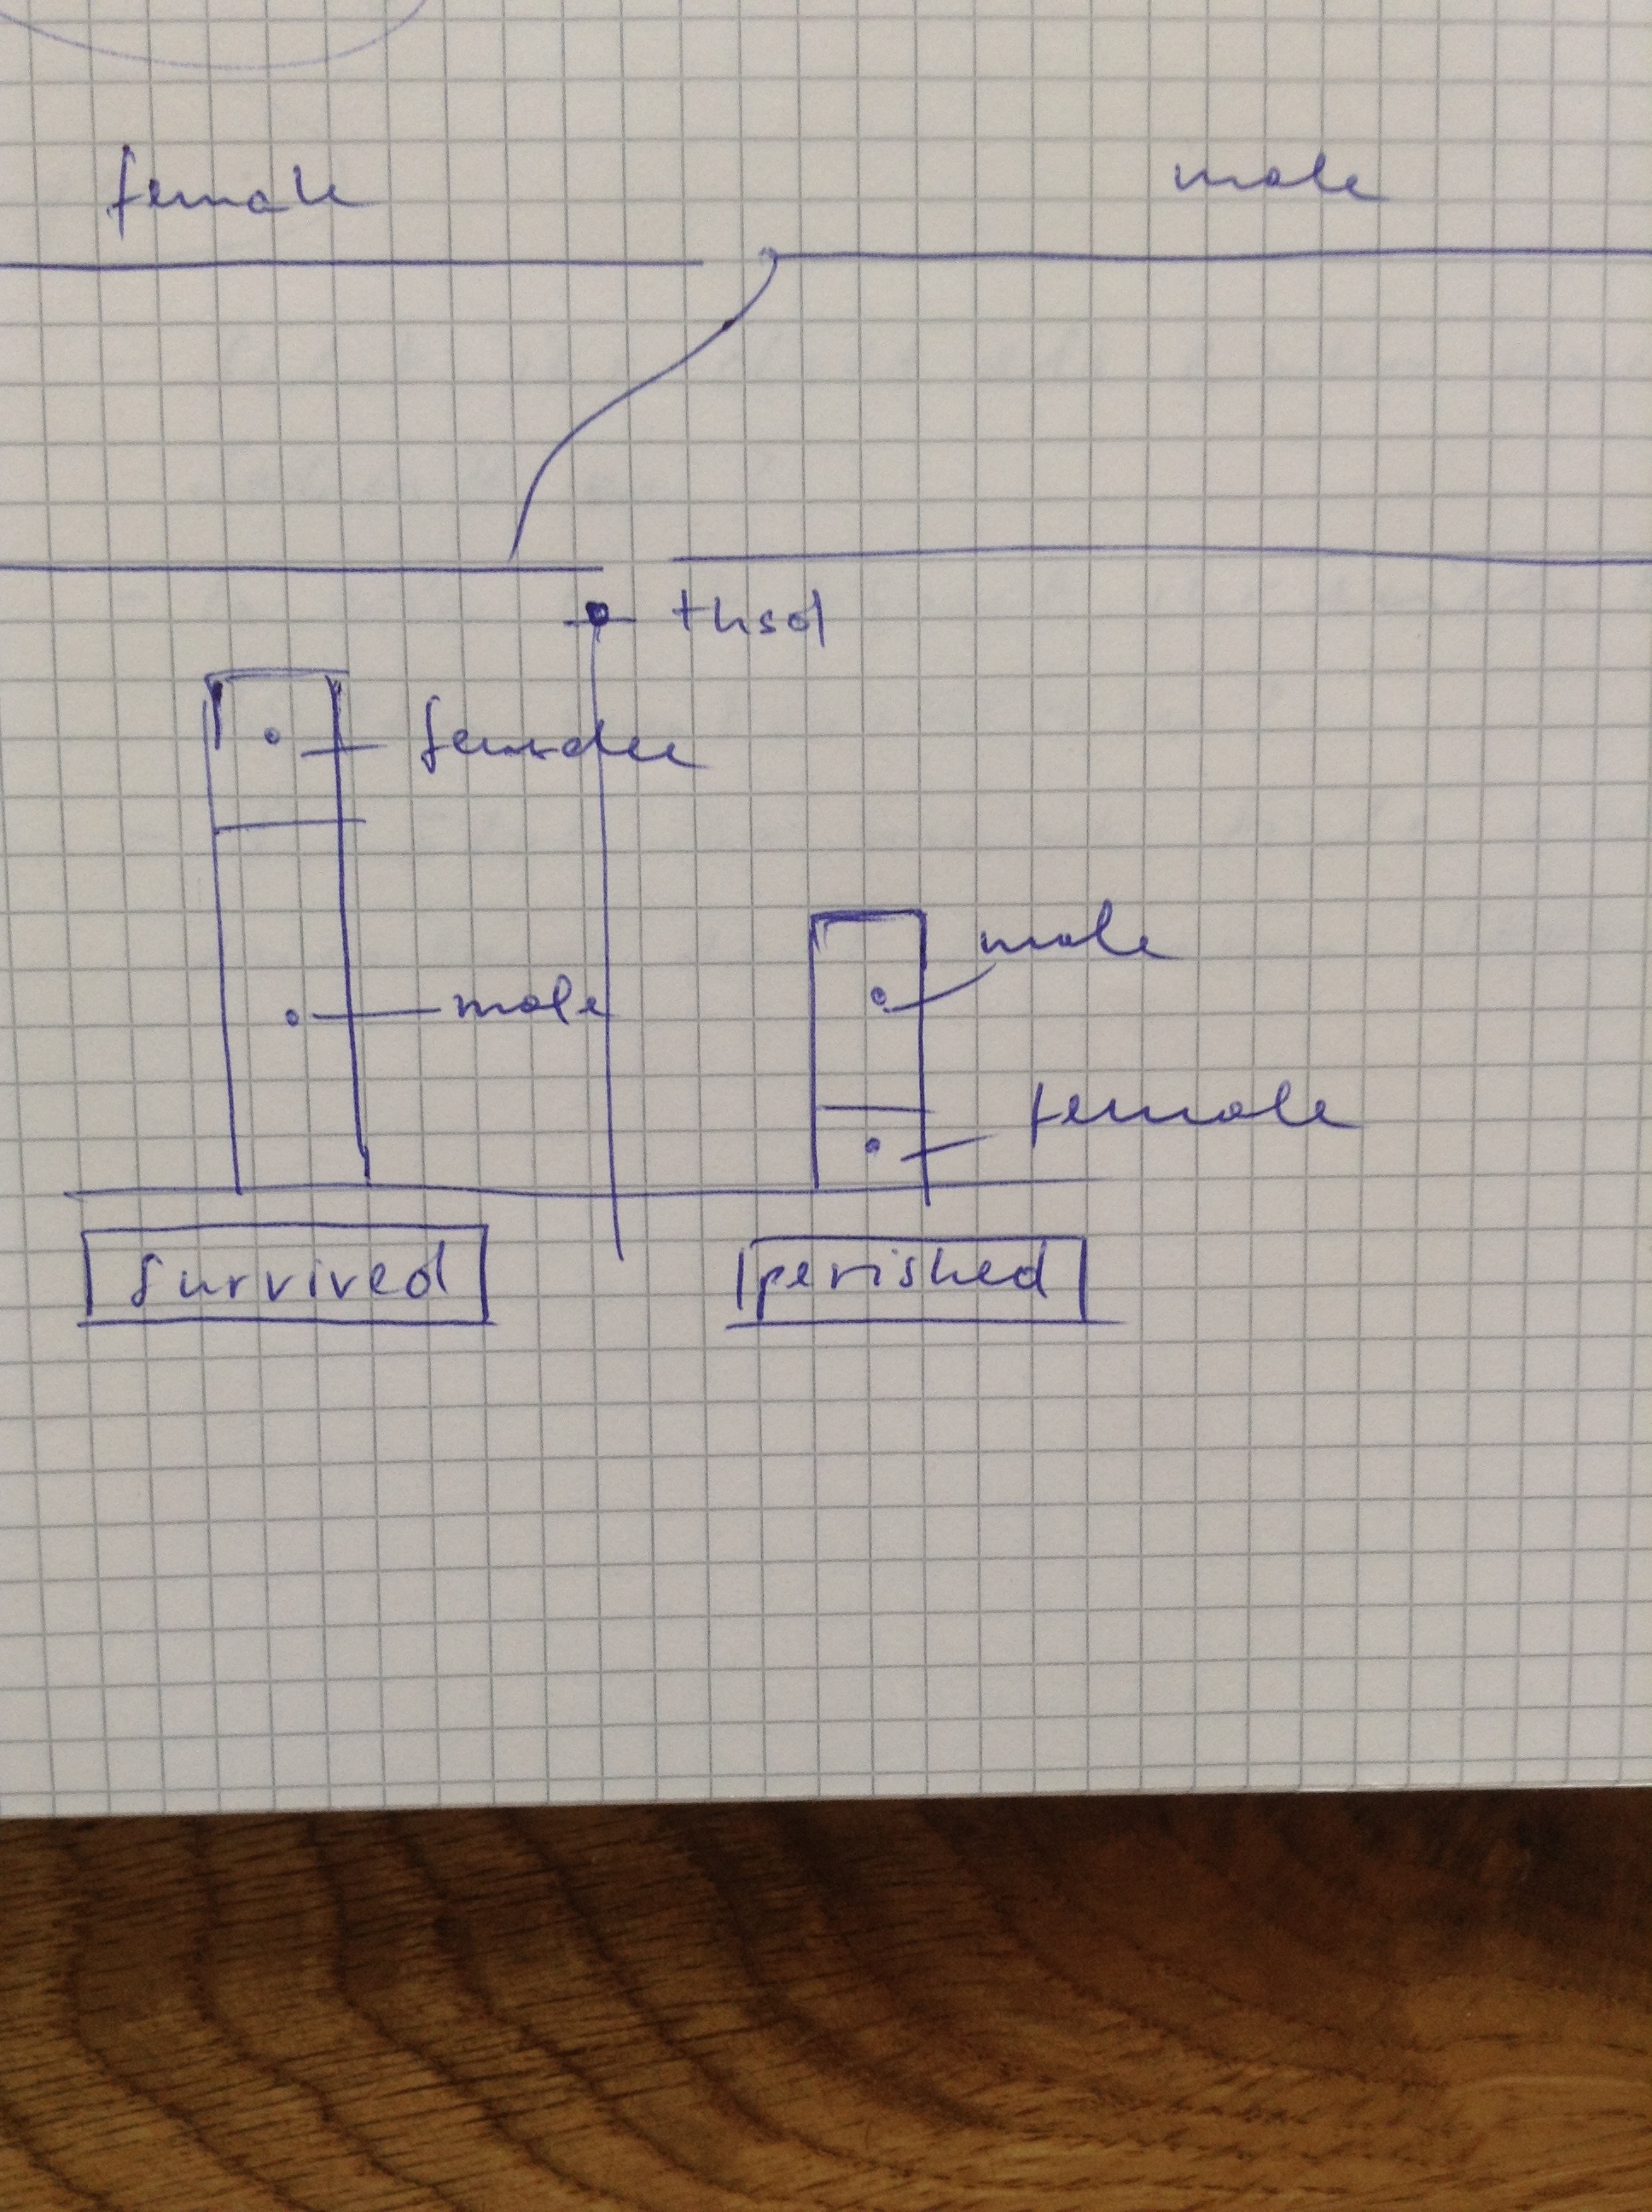 female male
thsd
female
male
male
female
survived perished